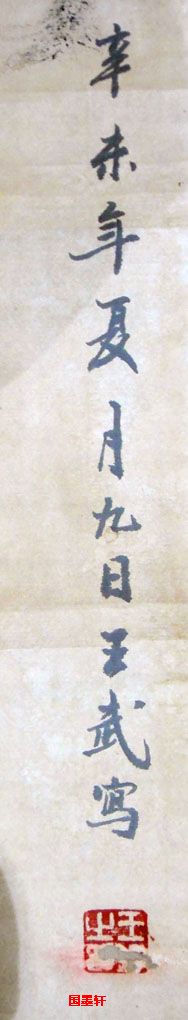 辛未年夏月九日王武写
国墨轩